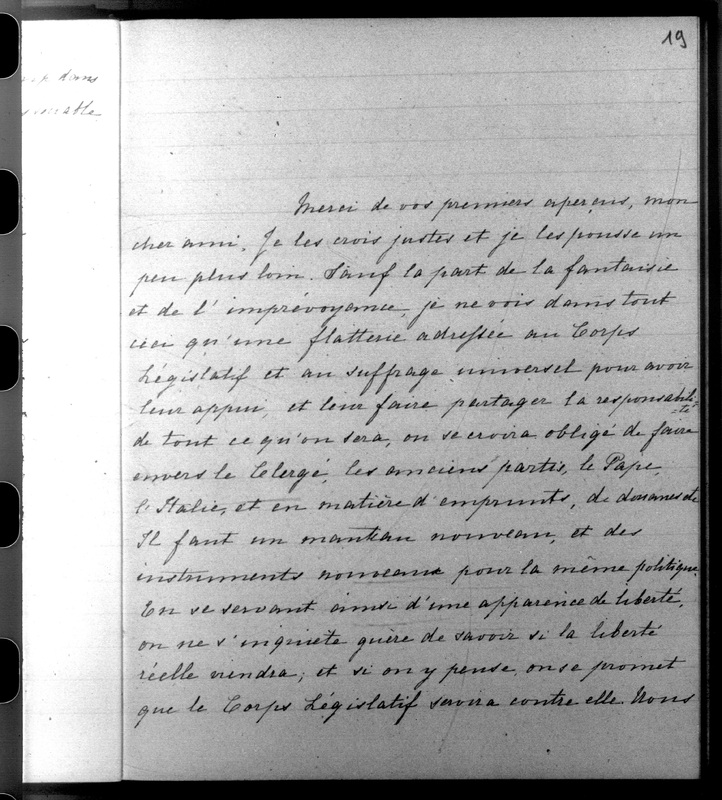 19
dans
Merci de vos premiers aperçus, mon
cher ami. Je les crois justes et je les pousse un
peu plus loin. Sauf la part de la fantaisie
et de l'imprévoyance, je ne vois dans tout
ceci qu'une flatterie adressée au Corps
Législatif et au suffrage universel pour avoir
leur appui, et leur faire partager la responsabili=
=té
de tout ce qu'on sera, ou se croira obligé de faire
envers le Clergé, les anciens partis, le Pape,
l'Italie, et en matière d'emprunts, de douanes etc
Il faut un manteau nouveau, et des
instruments nouveaux pour la même politique.
En se servant ainsi d'une apparence de liberté,
on ne s'inquiète guère de savoir si la liberté
réelle viendra; et si on y pense, on se promet
que le Corps Législatif servira contre elle. Nous